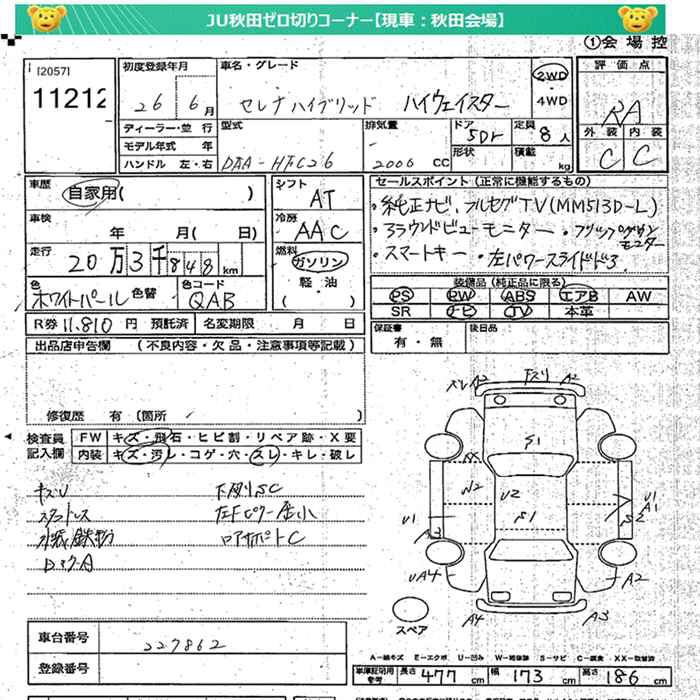 JU秋田ゼロ切りコーナー【現車:秋田会場】
①会場控
[2057]
11212
初度登録年月
26 6月
車名・グレード
セレナハイブリッド ハイウェイスター
2WD
・
4WD
評価点
RA
ディーラー・並行
モデル年式 年
ハンドル 左・右
型式
DAA-HFC26
排気量
2000 CC
ドア
5Dr
形状
定員
8人
積載
kg
外装 内装
C C
車歴
自家用( )
車検
年 月( 日)
走行
20万3千848km
色
ホワイトパール 色替
色コード
QAB
シフト
AT
冷房
AAC
燃料
ガソリン
軽・油
( )
セールスポイント(正常に機能するもの)
・純正ナビ、フルセグTV(MM513D-L)
・アラウンドビューモニター ・フリップダウンモニター
・スマートキー ・左パワースライドドア
装備品(純正品に限る)
PS PW ABS エアB AW
SR ナビ TV 本革
保証書
有・無
後日品
R券 11,810 円 預託済 名変期限 月 日
出品店申告欄 (不良内容・欠品・注意事項等記載)
修復歴 有 (箇所 )
検査員
記入欄
FW キズ・飛石・ヒビ割・リペア跡・X要
内装 キズ・汚レ・コゲ・穴・スレ・キレ・破レ
キズU
下廻りSC
スタッドレス
ロアサポートC
車台番号
227862
登録番号
スペア
A2
A2
S1
W2
U2
S1
U1
A3
U1
A1
S2
UA4
A2
A4
A3
A-線キズ E-エクボ U-凹み W-補修跡 S-サビ C-腐食 XX-取替済
車庫証明用
参考
長さ 477 cm 幅 173 cm 高さ 186 cm